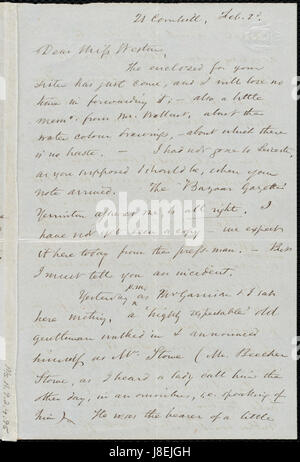 21 Cornhill, Feb. 2d.
Dear Miss Weston,
The enclosed for your
sister has just come, and I will lose no
time in forwarding it; - also a little
memo. from Mr. Wallcut, about the
water colour drawings, - about which there
is no haste. - I had not gone to Leicester,
as you supposed I should be, when your
note arrived. The "Bazaar Gazette"
Yerrinton assures me, is all right. I
have not yet seen a copy - we expect
it here today from the press-man. - But
I must tell you an incident.
Yesterday P.M. as Mr Garrison & I sat
here writing, a highly respectable old
gentleman walked in & announced
himself as Mr. Stowe (Mr. Beecher
Stowe, as I heard a lady call him the
other day, in an omnibus, i.e. speaking of
him). He was the bearer of a little
Ms. A.9.2.4, 95
alamy
alamy
Image ID: J8EJGH
www.alamy.com